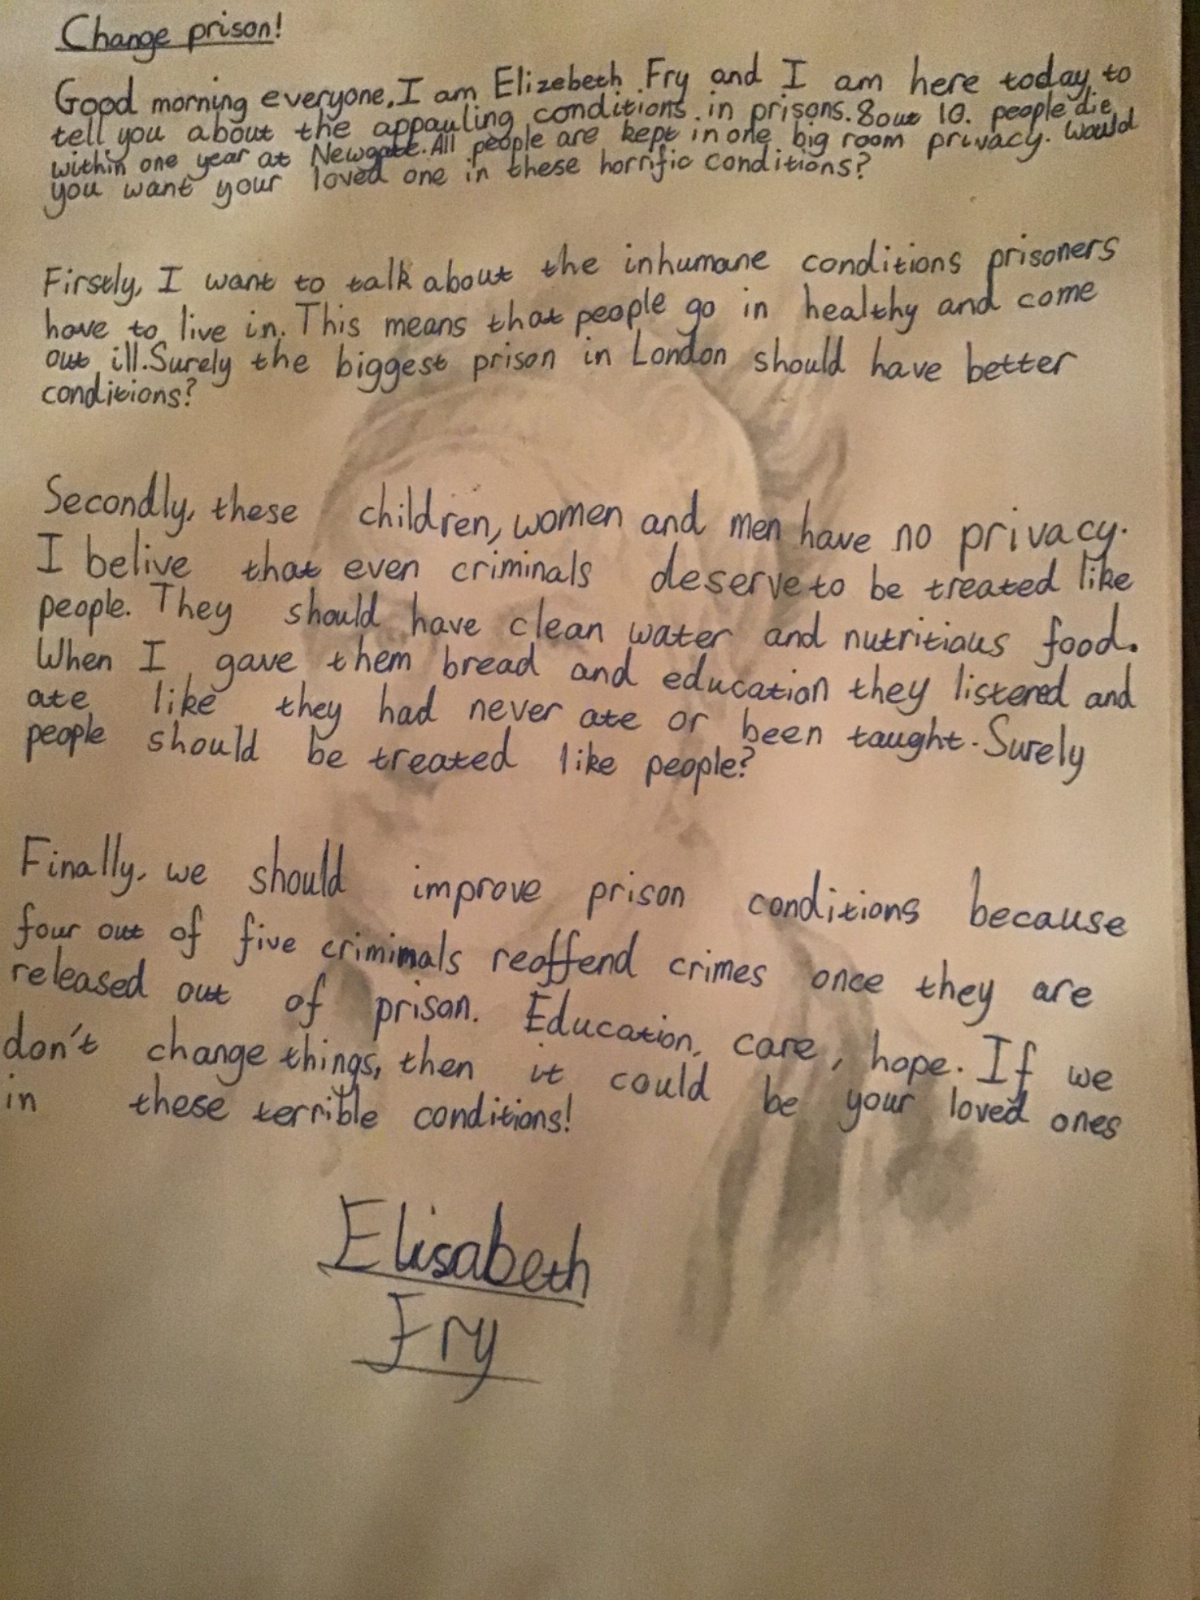 Change prison!
Good morning everyone, I am Elizebeth Fry and I am here today to
tell you about the appauling conditions in prisons. 8 out 10. people die
within one year at Newgate. All people are kept in one big room privacy. Would
you want your loved one in these horrific conditions?
Firstly, I want to talk about the inhumane conditions prisoners
have to live in. This means that people go in healthy and come
out ill. Surely the biggest prison in London should have better
conditions?
Secondly, these children, women and men have no privacy.
I belive that even criminals deserve to be treated like
people. They should have clean water and nutritious food.
When I gave them bread and education they listened and
ate like they had never ate or been taught. Surely
people should be treated like people?
Finally, we should improve prison conditions because
four out of five criminals reoffend crimes once they are
released out of prison. Education, care, hope. If we
don't change things, then it could be your loved ones
in these terrible conditions!
Elisabeth
Fry